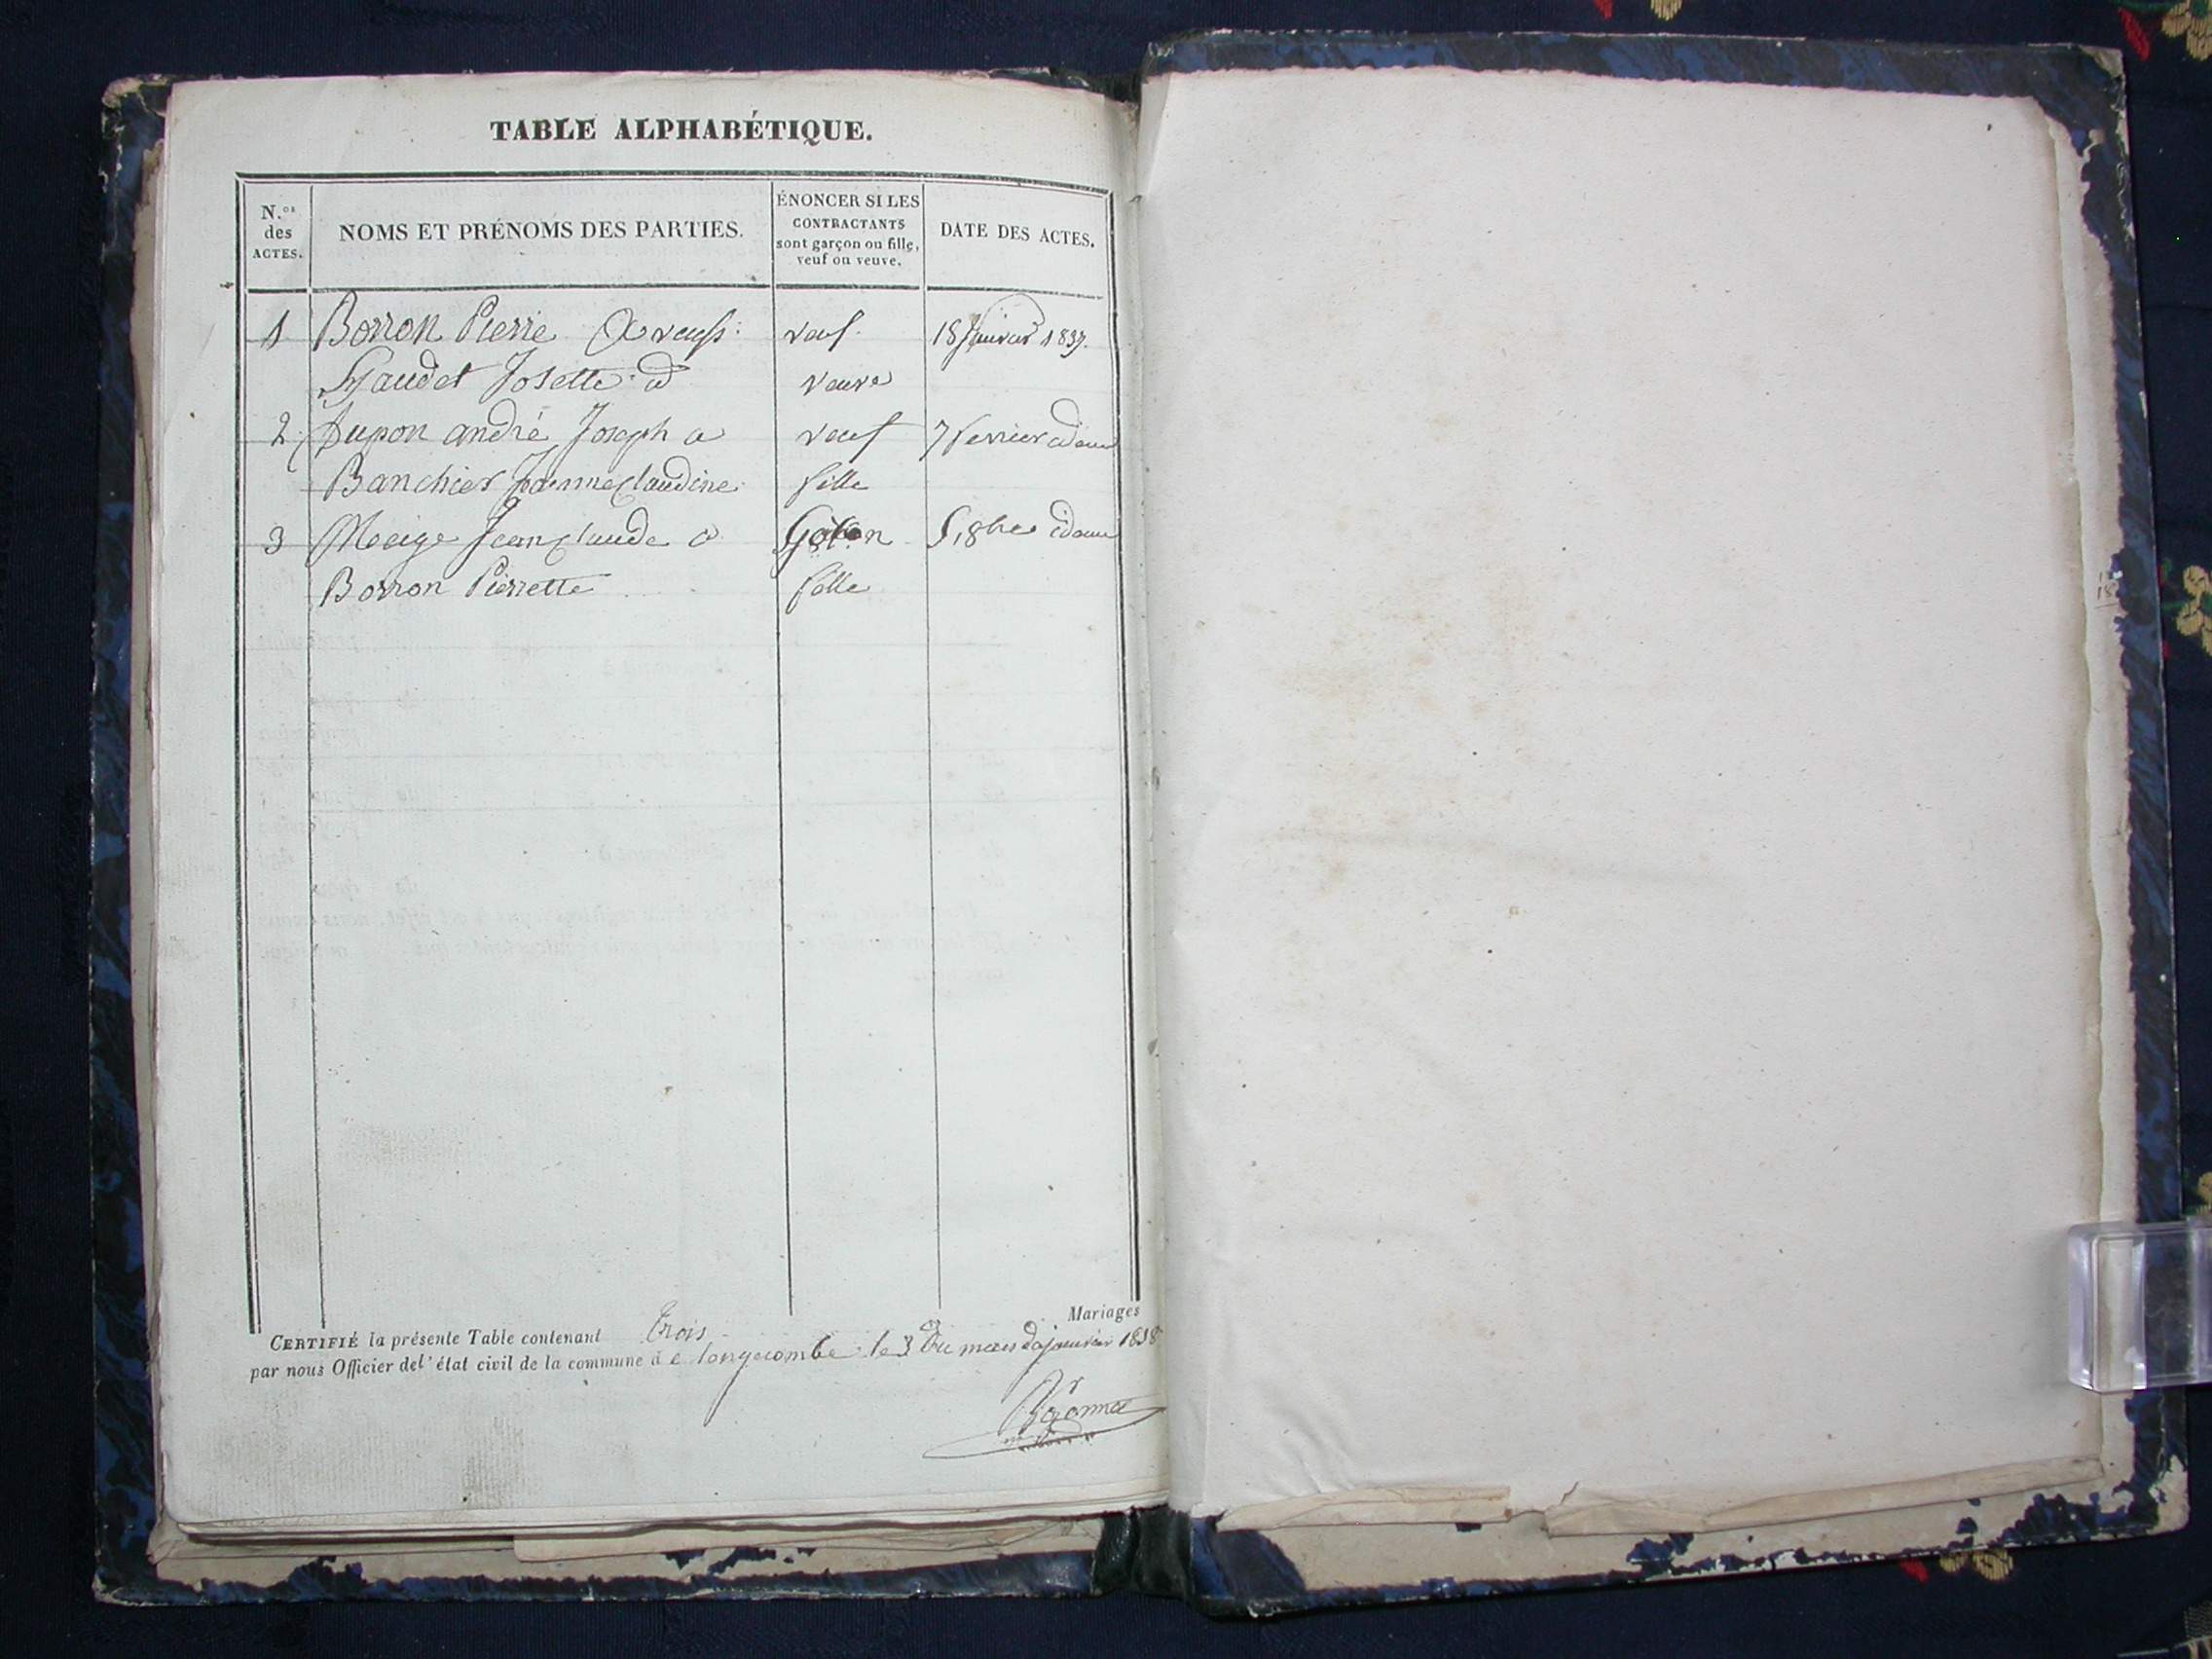 TABLE ALPHABÉTIQUE.
N.os des ACTES.
NOMS ET PRÉNOMS DES PARTIES.
ÉNONCER SI LES
CONTRACTANTS
sont garçon ou fille,
veuf ou veuve.
DATE DES ACTES.
1 Borron Pierre veuf 18 janvier 1837.
Gaudet Josette veuve
2 Dupon andré Joseph a veuf 7 fevrier idem
Banchier Jeanne claudine fille
3 Meige Jean claude a Garson 5, 8bre idem
Borron Pierrette fille
Mariages
CERTIFIÉ la présente Table contenant trois
par nous Officier de l'état civil de la commune de longecombe le 3 du mois de janvier 1838